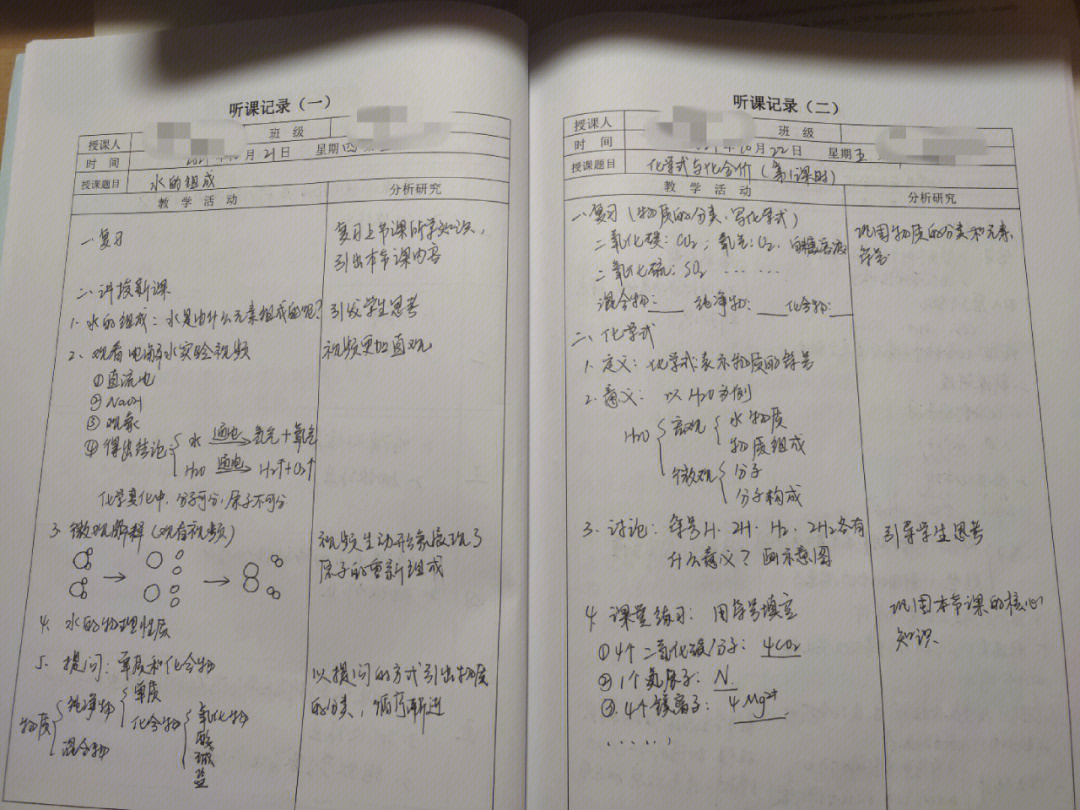 听课记录（一）
授课人 班级
时间 10月21日 星期四
授课题目 水的组成
教学活动 分析研究
一、复习 复习上节课所学知识，
引出本节课内容
二、讲授新课
1. 水的组成：水是由什么元素组成的呢？ 引发学生思考
2、观看电解水实验视频 视频更加直观
①直流电
②NaOH
③现象
④得出结论 水 通电 氢气+氧气
H2O 通电 H2↑+O2↑
化学变化中，分子可分，原子不可分
3. 微观解释（观看视频） 视频生动形象展现了
原子的重新组成
4. 水的物理性质
5. 提问：单质和化合物 以提问的方式引出物质
的分类，循序渐进
物质 纯净物 单质
化合物 氧化物
酸
碱
盐
混合物
听课记录（二）
授课人 班级
时间 年10月22日 星期五
授课题目 化学式与化合价（第1课时）
教学活动 分析研究
一、复习（物质的分类、写化学式） 巩固物质的分类和元素
二氧化碳：CO2；氧气：O2. 符号
二氧化硫：SO2 ……
混合物：___ 纯净物：___ 化合物：___
二、化学式
1. 定义：化学式表示物质的符号
2. 意义：以H2O为例
H2O 宏观 水物质
物质组成
微观 分子
分子构成
3. 讨论：符号H、2H、H2、2H2各有 引导学生思考
什么意义？画示意图
4. 课堂练习：用符号填空 巩固本节课的核心
知识.
①4个二氧化碳分子：4CO2
②1个氮原子：N.
③4个镁离子：4Mg2+
……